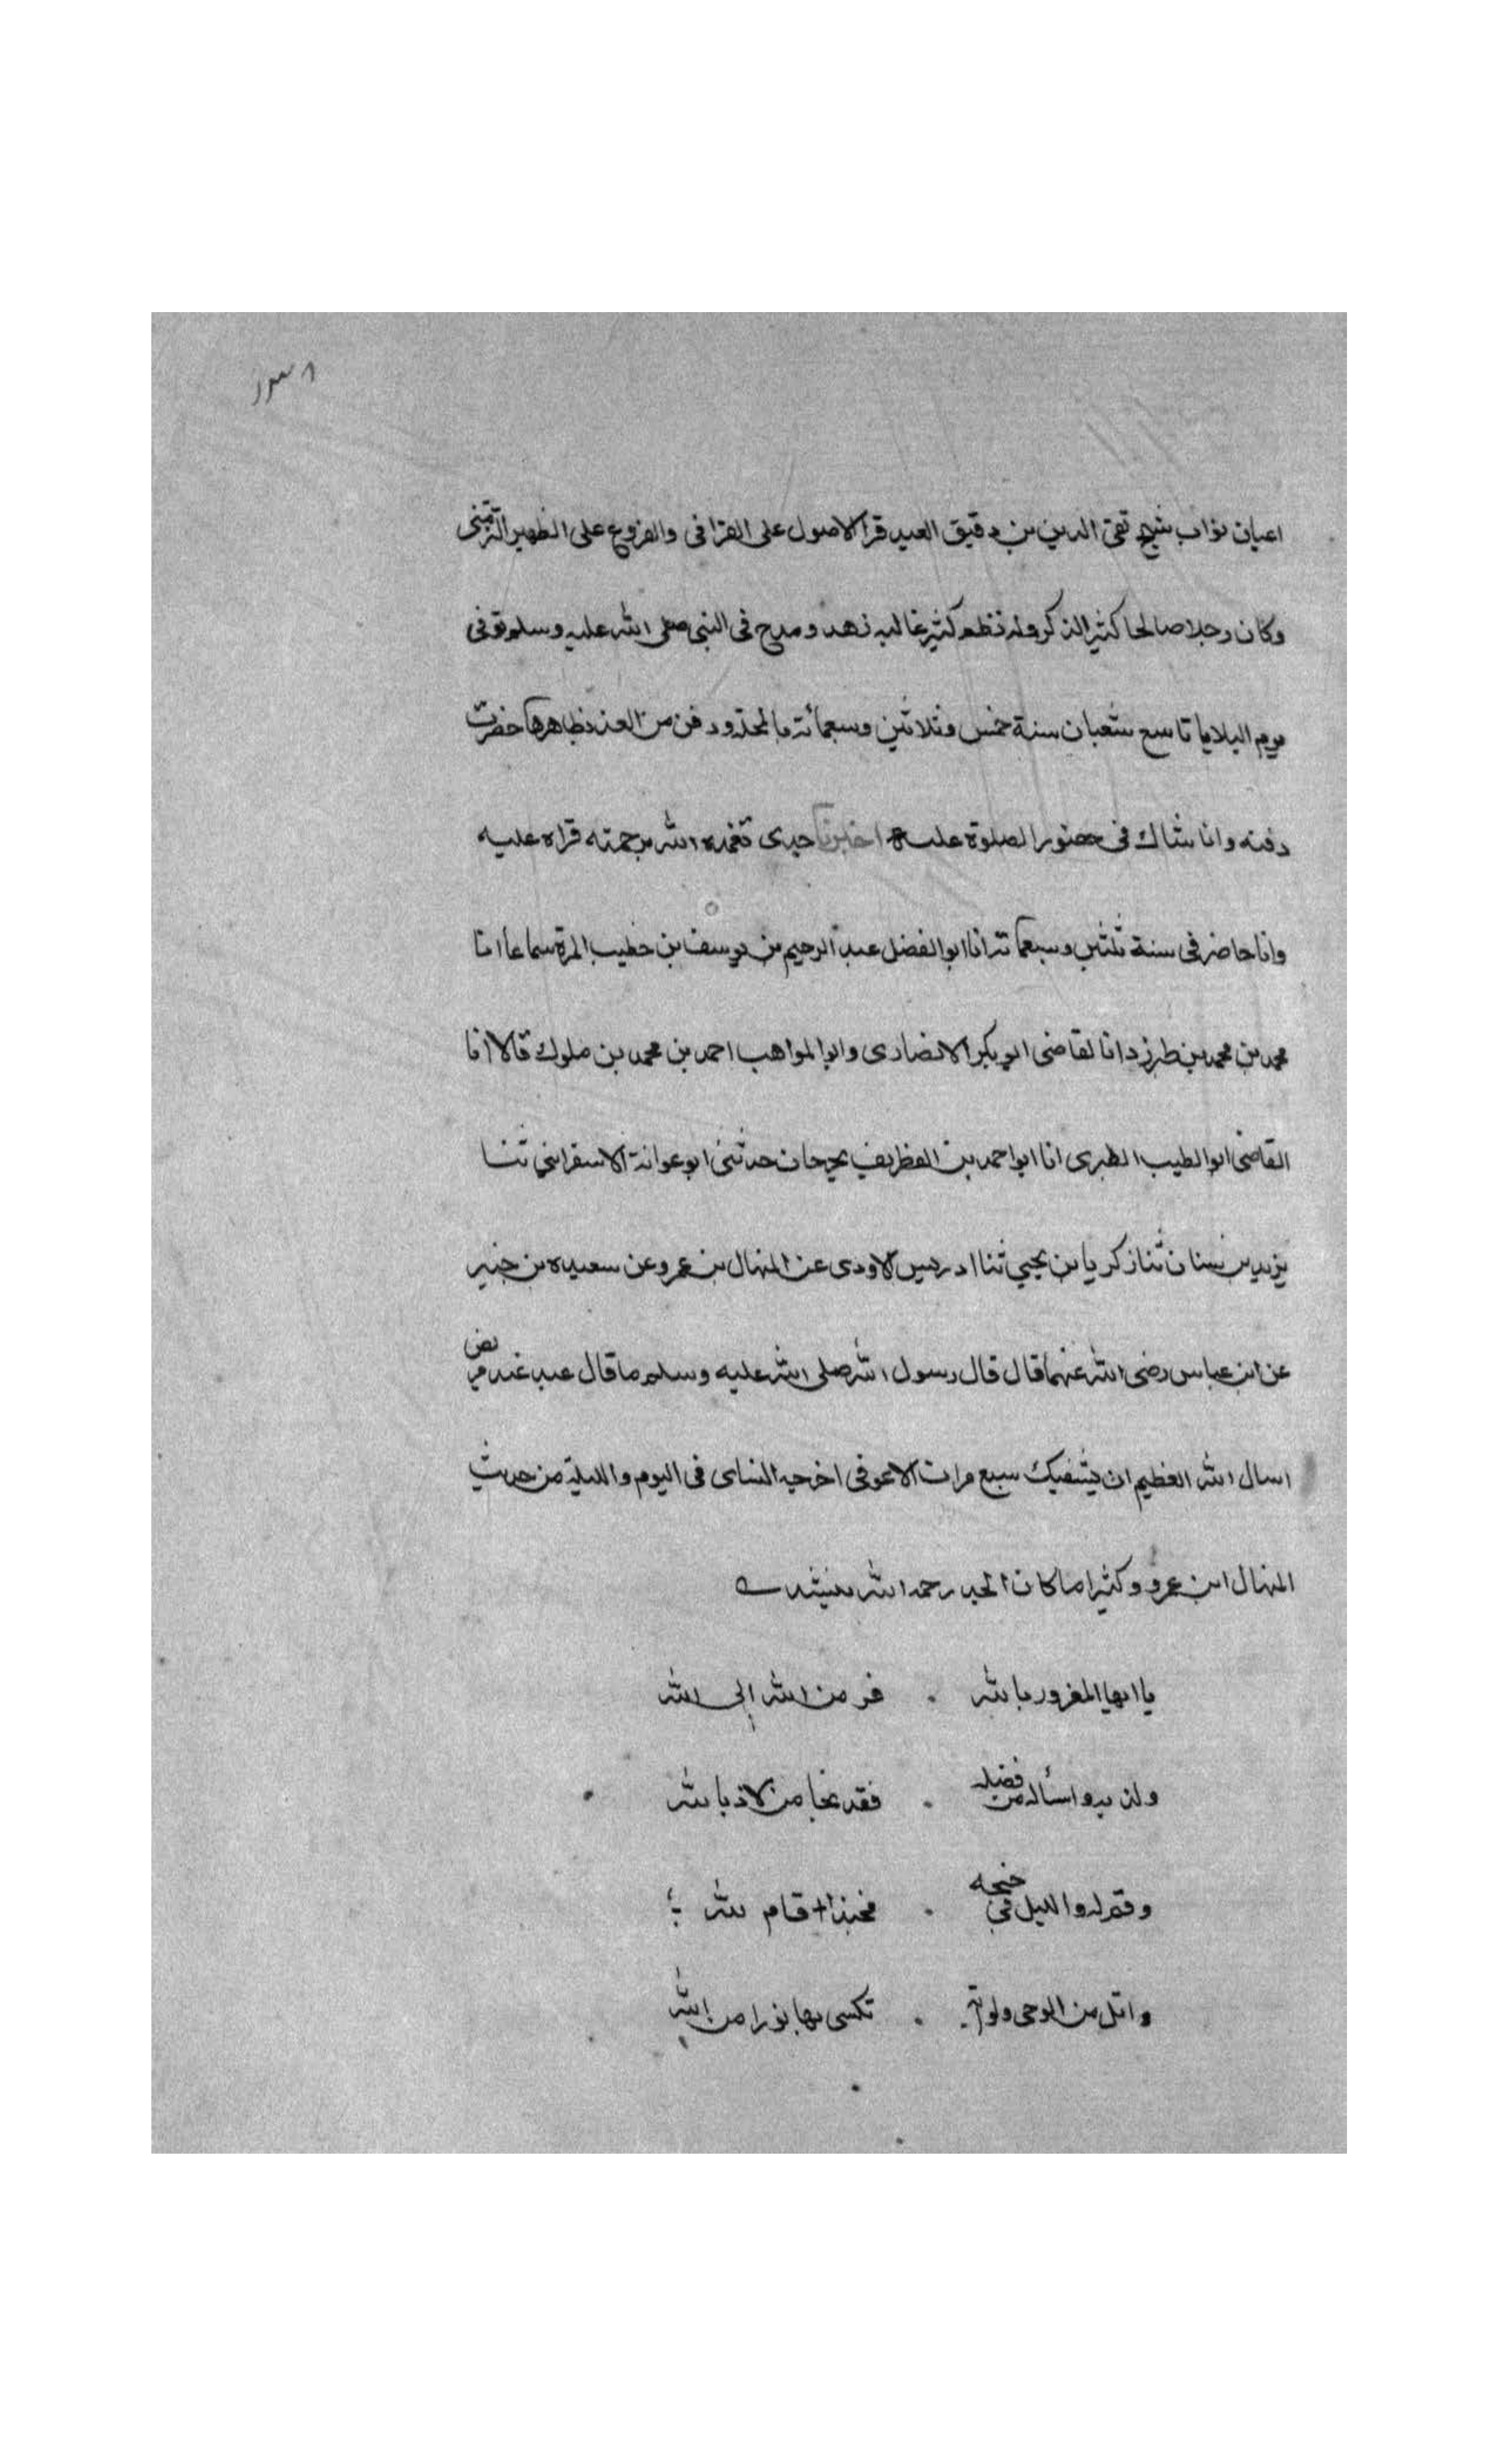 اعيان نواب شيخ تقى الدين بن دقيق العيد قرا الاصول على القرافى والفروع على الظهير التزمنتى
وكان رجلا صالحا كثير الذكر وله نظم كثير غالبه زهد ومدح فى النبى صلى الله عليه وسلم توفى
يوم تاسع شعبان سنة خمس وثلاثين وسبعمائة بالمحلة ودفن من الغد بظاهرها حضرت
دفنه وانا شاك فى حضور الصلوة عليه اخبرنا جدى تغمده الله برحمته قراه عليه
وانا حاضر فى سنة ثلثين وسبعمائة انا ابو الفضل عبد الرحيم بن يوسف بن خطيب المزة سماعا انا
محمد بن محمد بن طبرزد انا لقاضى ابو بكر الانصارى وابو المواهب احمد بن محمد بن ملوك قالا انا
القاضى ابو الطيب الطبرى انا ابو احمد بن الغطريف بجرجان حدثنى ابو عوانة الاسفراينى ثنا
يزيد بن سنان ثنا زكريا بن يحيي ثنا ادريس الاودى عن المنهال بن عمرو عن سعيد بن جبير
عن ابن عباس رضى الله عنهما قال قال رسول الله صلى الله عليه وسلم ما قال عبد عند مريض
اسال الله العظيم ان يشفيك سبع مرات الا عوفى اخرجه النساى فى اليوم والليلة من حديث
المنهال ابن عمرو وكثيرا ما كان الجد رحمه الله ينشد
يا ايها المغرور بالله . فر من الله إلى الله
ولذ به واسأله من فضله . فقد نجا من لاذ بالله
وقم له والليل فى جنحه . فحبذا قام لله
واتل من الوحى ولو آية . تكسى بها نورا من الله